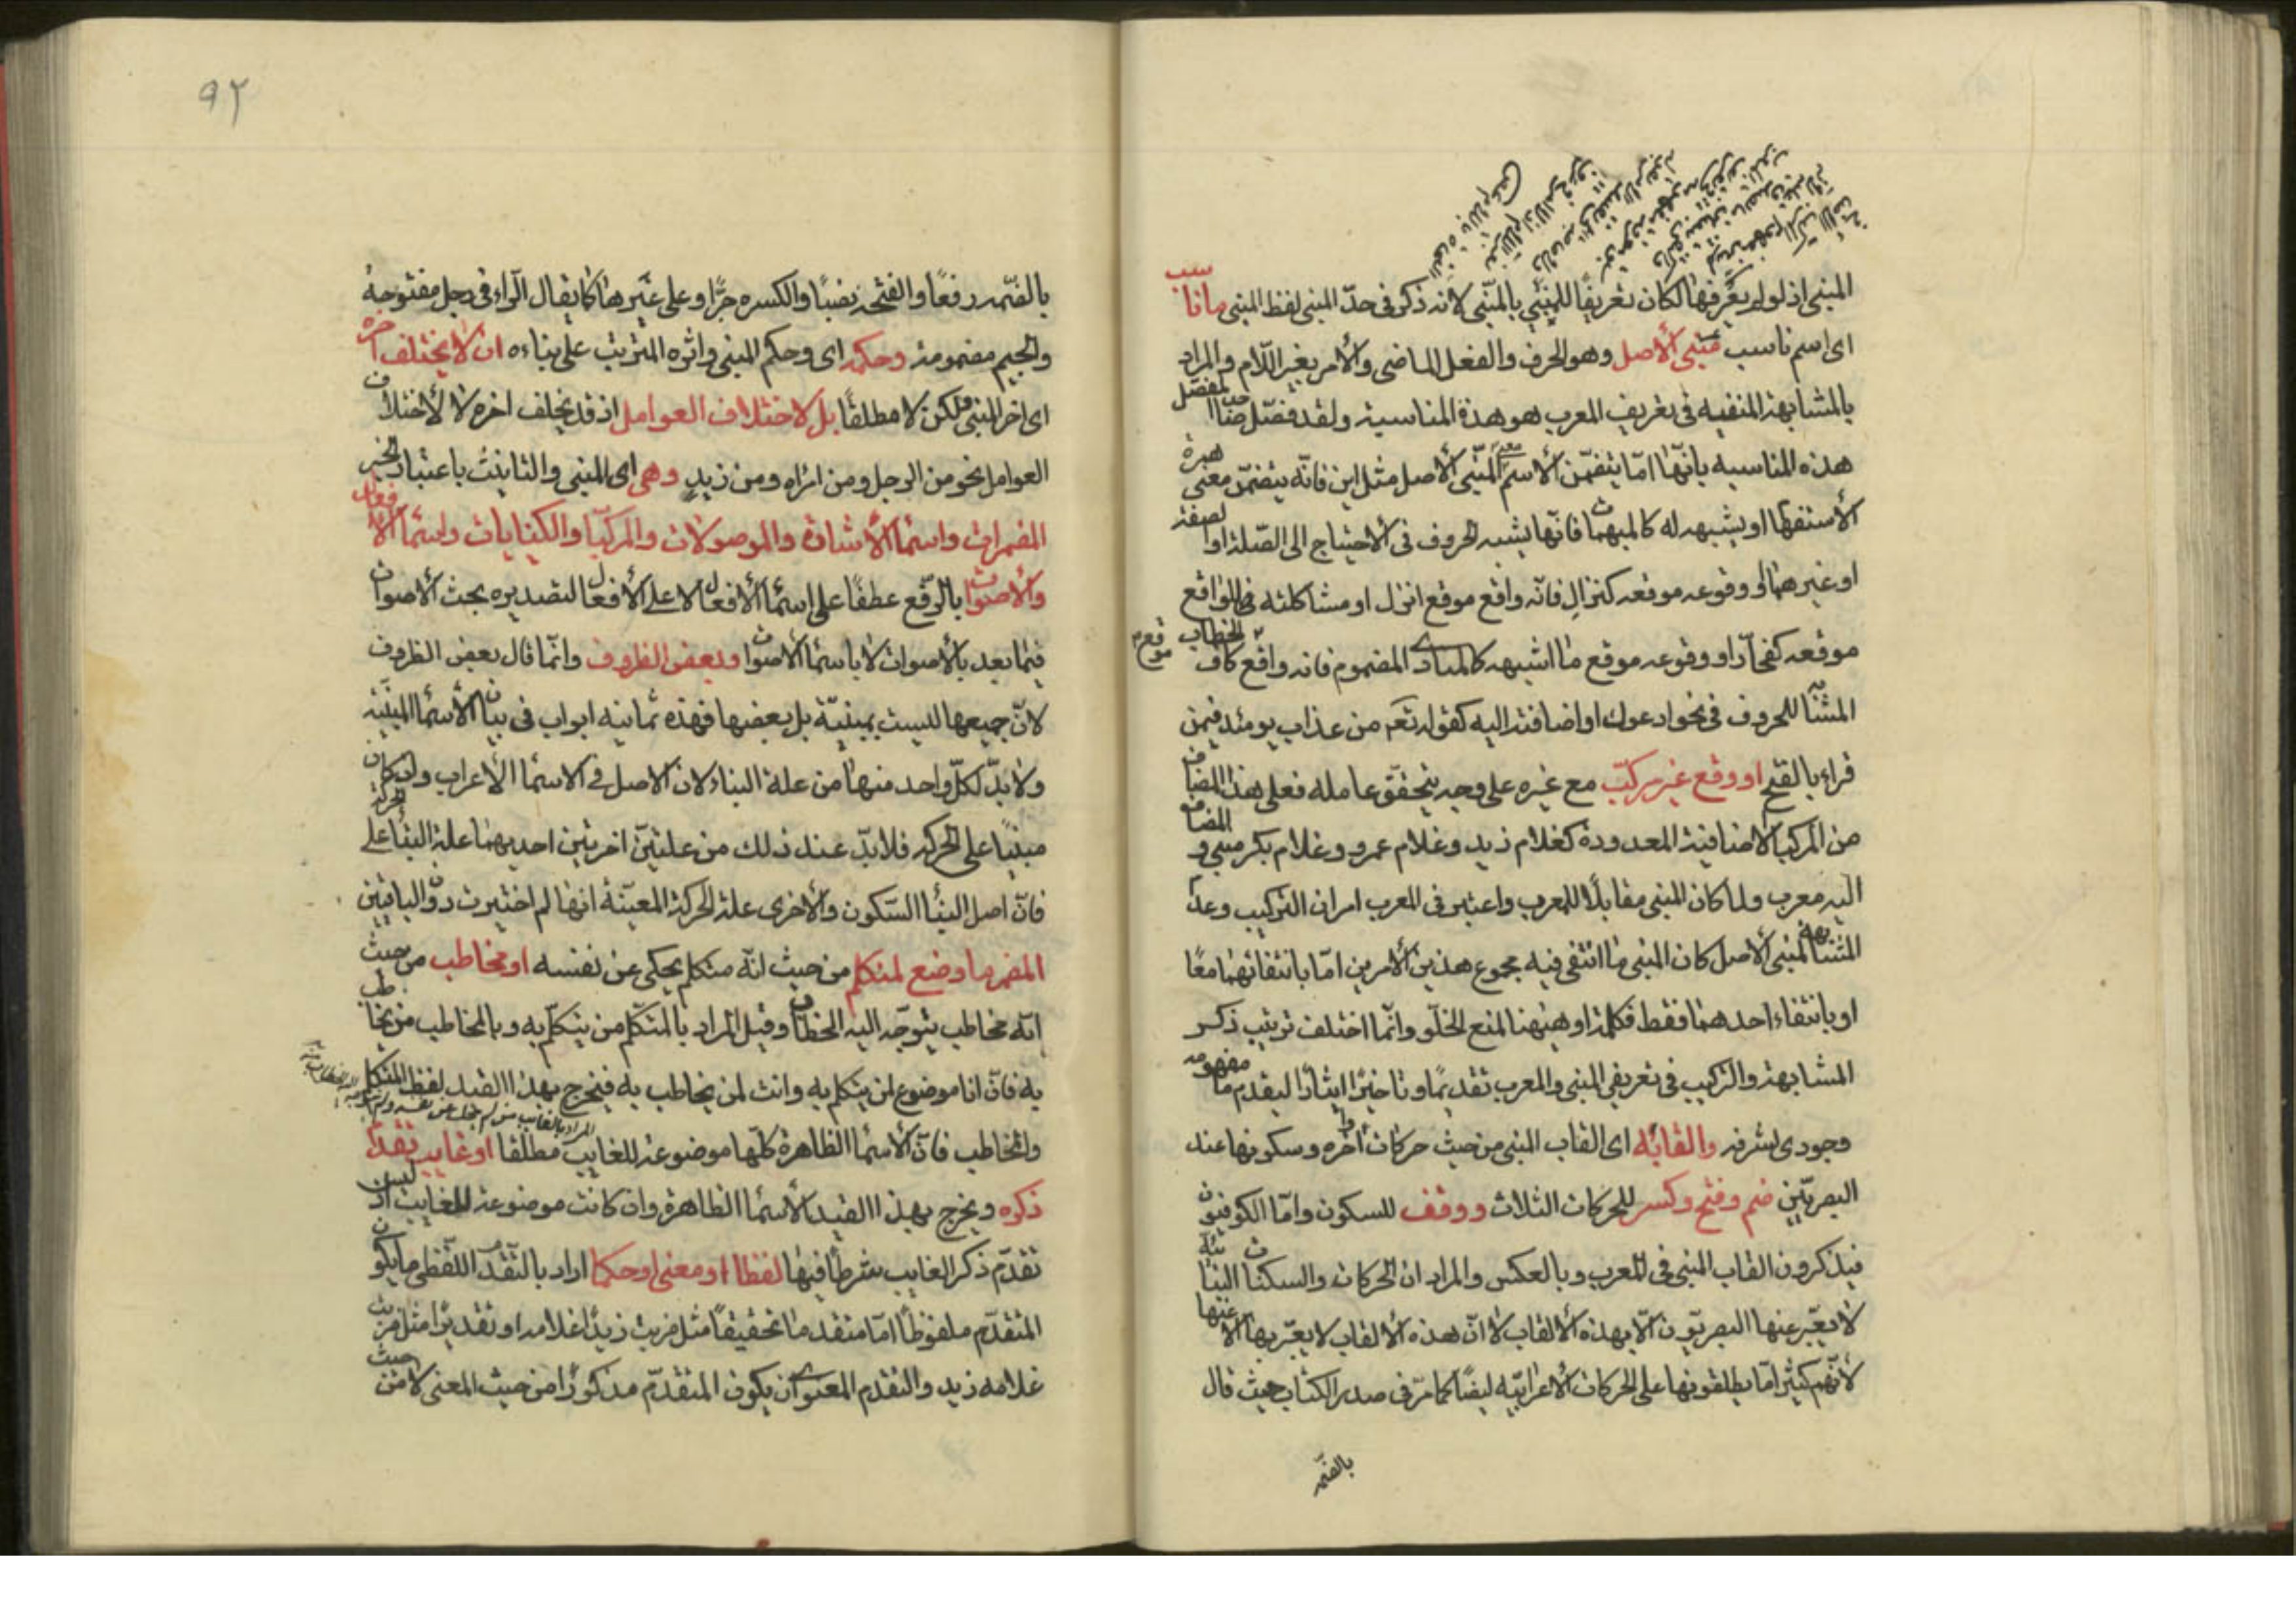 المبنى اذ لو لم يعرفها لكان تعريفا للمبنى بالمبنى لانه ذكر فى حدّ المبنى لفظ المبنى ما ناسب
اى اسم ناسب مبنى الأصل وهو الحرف والفعل الماضى والأمر بغير اللّام والمراد
بالمشابهة المنفيه فى تعريف المعرب هو هذة المناسبة ولقد فصّل صاحب المفصّل
هذه المناسبه بانّها امّا بتضمّن الأسم معنى المبنّى الأصل مثل اين فانّه يتضمّن معنى همزة
الأستفها او يشبهه له كالمبهمات فانّها يشبه الحروف فى الأحتياج الى الصّلة او الصفة
او غيرهما او وقوعه موقعه كنزالِ فانّه واقع موقع انزل او مشاكلته للواقع
موقعه كفجار او وقوعه موقع ما اشبهه كالمنادى المضموم فانه واقع موقع كاف الخطاب
المشابه للحروف فى نحو ادعوك او اضافته اليه كقوله تعم من عذاب يومئذ فيمن
قراء بالفتح او وقع غير مركبّ مع غيره على وجه يتحقّق عامله فعلى هذا المضاف
من المركبا الاضافية المعدودة كغلام زيد وغلام عمرو وغلام بكر مبنى والمضاف
اليه معرب ولما كان المبنى مقابلًا للمعرب واعتبر فى المعرب امران التركيب وعدم
المشابهة لمبنى الأصل كان المبنى ما انتفى فيه مجموع هذين الأمرين امّا بانتفائهما معًا
او بانتفاء احدهما فقط فكلمة او هيهنا لمنع الخلّو وانّما اختلف ترتيب ذكر
المشابهة والتركيب فى تعريفى المبنى والمعرب تقديمًا وتاخيرًا ايثارًا لتقدم ما مفهومه
وجودى لشرفه والقابُه اى القاب المبنى من حيث حركات آخره وسكونها عند
البصريّين ضم وفتح وكسر للحركات الثلاث ووقف للسكون وامّا الكوفيون
فيذكرون القاب المبنى فى المعرب وبالعكس والمراد ان الحركات والسكنات البنائيّة
لا يعبّر عنها البصريّون الّا بهذه الألقاب لا انّ هذه الألقاب لا يعبّر بها الّا عنها
لأنّهم كثيرًا مّا يطلقونها على الحركات الأعرابيّه ايضًا كما مرّ فى صدر الكتاب حيث قال
بالضّمه
٩٢
بالضّمه رفعًا والفتحه نصبًا والكسره جرًّا وعلى غيرهما كما يقال الرّاء فى رجل مفتوحة
والجيم مضمومة وحكمه اى وحكم المبنى واثره المترتب على بناءه ان لا يختلف آخره
اى اخر المبنى لكن لا مطلقًا بل لاختلاف العوامل اذ قد يختلف اخره لا لأختلاف
العوامل نحو من الرجل ومن امراه ومن زيدٍ وهى اى المبنى والتانيث باعتبار الخبر
المضمرات واسماء الأشارة والموصولات والمركبّا والكنايات واسماء الأفعال
والأصوات بالرّفع عطفًا على اسماء الأفعال لا على الأفعال لتصديره بحث الأصوات
فيما بعد بالأصوات لا باسماء الأصوات وبعض الظروف وانّما قال بعض الظروف
لانّ جميعها ليست بمبنيّة بل بعضها فهذه ثمانيه ابواب فى بيان الأسماء المبنيّة
ولا بدّ لكلّ واحد منها من علة البناء لان الاصل فى الاسماء الأعراب وان كان
مبنيًا على الحركه فلا بدّ عند ذلك من علتيّن اخريين احديهما علة البناء على الحركة
فانّ اصل البناء السّكون والأخرى علة الحركة المعيّنة انها لم اختيرت دون الباقيتين
المضمر ما وضع لمتكلم من حيث انّه متكلم يحكى عن نفسه او مخاطب من حيث
انّه مخاطب يتوجّه اليه الخطاب وقيل المراد بالمتكلّم من يتكلّم به وبالمخاطب من يخاطب
به فانّ انا موضوع لمن يتكلم به وانت لمن يخاطب به فيخرج بهذا القيد لفظ المتكلم
والمخاطب فانّ الأسماء الظاهرة كلّها موضوعة للغايب مطلقا او غايب تقدّم
ذكره ويخرج بهذا القيد الأسماء الظاهرة وان كانت موضوعة للغايب اذ ليس
تقدّم ذكر الغايب شرطًا فيها لفظا او معنى او حكما اراد بالتقدّم اللّفظى ما يكون
المتقدّم ملفوظًا امّا متقدما تحقيقًا مثل ضربت زيدًا غلامه او تقديرًا مثل ضربت
غلامه زيد والتقدم المعنوى ان يكون المتقدّم مذكورًا من حيث المعنى لا من حيث